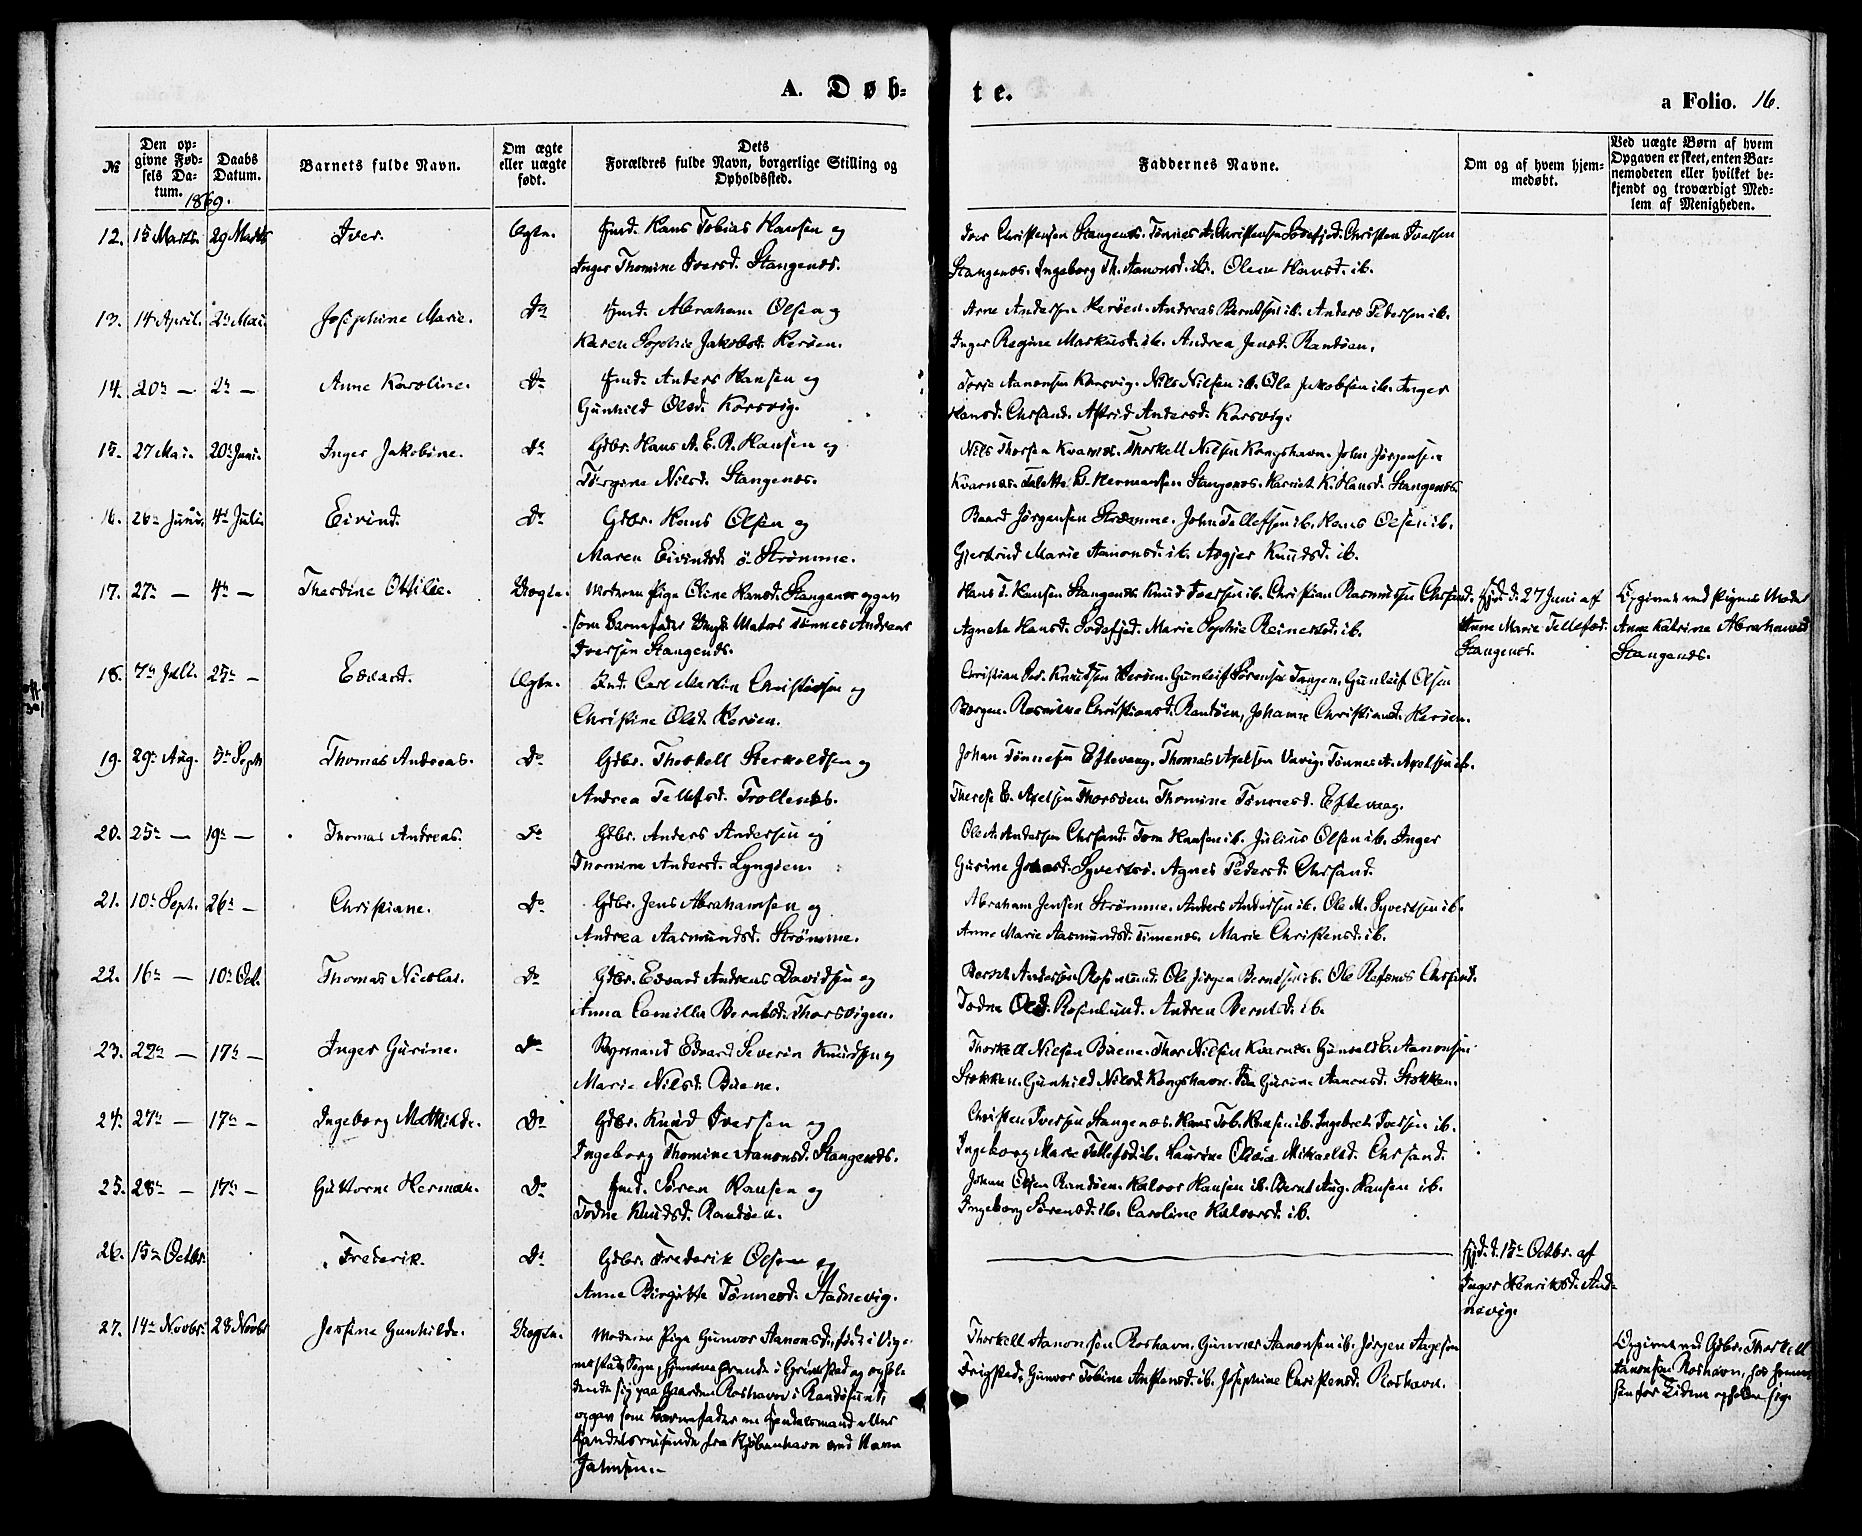 A. Døb-
te.
a Folio. 16.
№
Den op-
givne Fød-
sels Da-
tum.
1869.
Daabs
Datum.
Barnets fulde Navn.
Om ægte
eller uægte
født.
Dets
Forældres fulde Navn, borgerlige Stilling og
Opholdssted.
Faddernes Navne.
Om og af hvem hjem-
medøbt.
Ved uægte Børn af hvem
Opgaven er skeet, enten Bar-
nemoderen eller hvilket be-
kjendt og troværdigt Med-
lem af Menigheden.
12. 15 Marts. 29 Marts Iver. Ægte. Hans Tobias Hansen og
Inger Thomine Iversd. Stangenes.
Iver Christensen Stangenes. Tønnes A. Christensen Christen Iversen
Stangenes. Ingeborg Th. Aanonsd. ib. Olene Hansd. ib.
13. 14 April. 2n Mai. Josephine Marie. Do Abraham Olsen og
Karen Sophie Jakobsd. Herøen.
Arne Andersen Herøen. Andreas Berntsen ib. Anders Pedersen ib.
Inger Regine Markusd. ib. Andrea Jensd. Randøen.
14. 20n — 2n — Anne Karoline. Do Anders Hansen og
Gunhild Olsd. Korsvig.
Terje Aanonsen Korsvig. Nils Nilsen ib. Ole Jakobsen ib. Inger
Hansd. Chrsand. Astrid Andersd. Korsvig.
15. 27 Mai. 20n Juni. Inger Jakobine. Do Gdbr. Hans A. E. B. Hansen og
Nilsd. Stangenes.
Nils Thorsen Kvarnes. Thorkell Nilsen Kongshavn. John Jørgensen
Kvarnes. Hermansen Stangenes. Harriet K. Hansd. Stangenes.
16. 26n Juni. 4de Juli. Eivind. Do Gdbr. Hans Olsen og
Maren Eivindsd. ö. Strømme.
Baard Jørgensen Strømme. John Tellefsen ib. Hans Olsen ib.
Gjertrud Marie Aanonsd. ib. Knudsd. ib.
17. 27n — 4n — Ottilie. Uægte. Moderen Pige Oline Hansd. Stangenes opgav
som Barnefader Ungk. Matros Tønnes Andreas
Iversen Stangenes.
Hans T. Hansen Stangenes Knud Iversen ib. Christian Rasmussen Chrsand.
Agnete Hansd. Marie Sophie Reinertsd. ib.
Hjd. d. 27 Juni af
Anne Marie Tellefsd.
Stangenes.
Opgivet ved Pigens Moder
Anne Katrine Abrahamsd
Stangenes.
18. 7n Juli. 25n — Edvard. Ægte. Carl Martin Christensen og
Christine Olsd. Herøen.
Christian Knudsen Herøen. Gunleif Sørensen Tangen, Gunleif Olsen
Rosine Christiansd. Randøen, Johanne Christiansd. Herøen.
19. 29n Aug. 5n Septb Thomas Andreas. Do Gdbr. Thorkell og
Andrea Tellefsd. Trollenes.
Johan Tønnesen Eftevaag. Thomas Axelsen Tønnes A. Axelsen ib.
Therese E. Axelsen Thomine Tønnesd. Eftevaag.
20. 25n — 19n — Thomas Andreas. Do Gdbr. Anders Andersen og
Thomine Andersd. Lyngøen.
Ole A. Andersen Chrsand. Tom Hansen ib. Julius Olsen ib. Inger
Gurine Agnes Pedersd. Chrsand.
21. 10n Septb. 26n — Christiane. Do Gdbr. Jens Abrahamsen og
Andrea Aasmundsd. Strømme.
Abraham Jensen Strømme. Anders Andersen ib. Ole M. Syvertsen ib.
Anne Marie Aasmundsd. Timenes. Marie Christensd. ib.
22. 16n — 10n Oct. Thomas Nicolai. Do Gdbr. Edvard Andreas Davidsen og
Anna Camilla Berntsd. Thorsvigen.
Bernt Andersen Rosenlund. Ole Jørgen Berntsen ib. Ole Chrsand.
Todne Olsd. Rosenlund. Andrea Berntsd. ib.
23. 22n — 17n — Inger Gurine. Do Edvard Severin Knudsen og
Marie Nilsd. Buene.
Thorkell Nilsen Buene. Thor Nilsen Kvarnes. Gunvald E. Aanonsen
Stokken. Gunhild Nilsd. Kongshavn. Gurine Aanonsd. Stokken.
24. 27n — 17n — Ingeborg Mathilde. Do Gdbr. Knud Iversen og
Ingeborg Thomine Aanonsd. Stangenes.
Christen Iversen Stangenes. Hans Tob. Hansen ib. Ingebret Iversen ib.
Ingeborg Marie Tellefsd. ib. Laurine Olivia Mikaelsd. Chrsand.
25. 28n — 17n — Guttorm Herman. Do Søren Hansen og
Todne Knudsd. Randøen.
Johan Olsen Randøen. Halvor Hansen ib. Bernt Aug. Hansen ib.
Ingeborg Sørensd. ib. Caroline Halvorsd. ib.
26. 15n Octbr. Frederik. Do Gdbr. Frederik Olsen og
Anne Birgitte Tønnesd.
Hjd. d. 15n Octbr. af
Inger Henriksd.
27. 14n Novbr. 28 Novbr Jensine Gunhilde. Uægte. Moderen Pige Gunvor Aanonsd. født i
Sogn, hjemmehørende i Grimstad og ophol-
dende sig paa Gaarden Roshavn i Randøsund,
opgav som Barnefader en Handelsmand eller
Handelsreisende fra Kjøbenhavn ved Navn
Thorkell Aanonsen Roshavn. Aanonsen ib. Jørgen Aagesen
Gunvor Tobine ib. Josephine Christensd. Roshavn.
Opgivet ved Gdbr. Thorkell
Aanonsen Roshavn, hos hvem
for Tiden opholder sig.